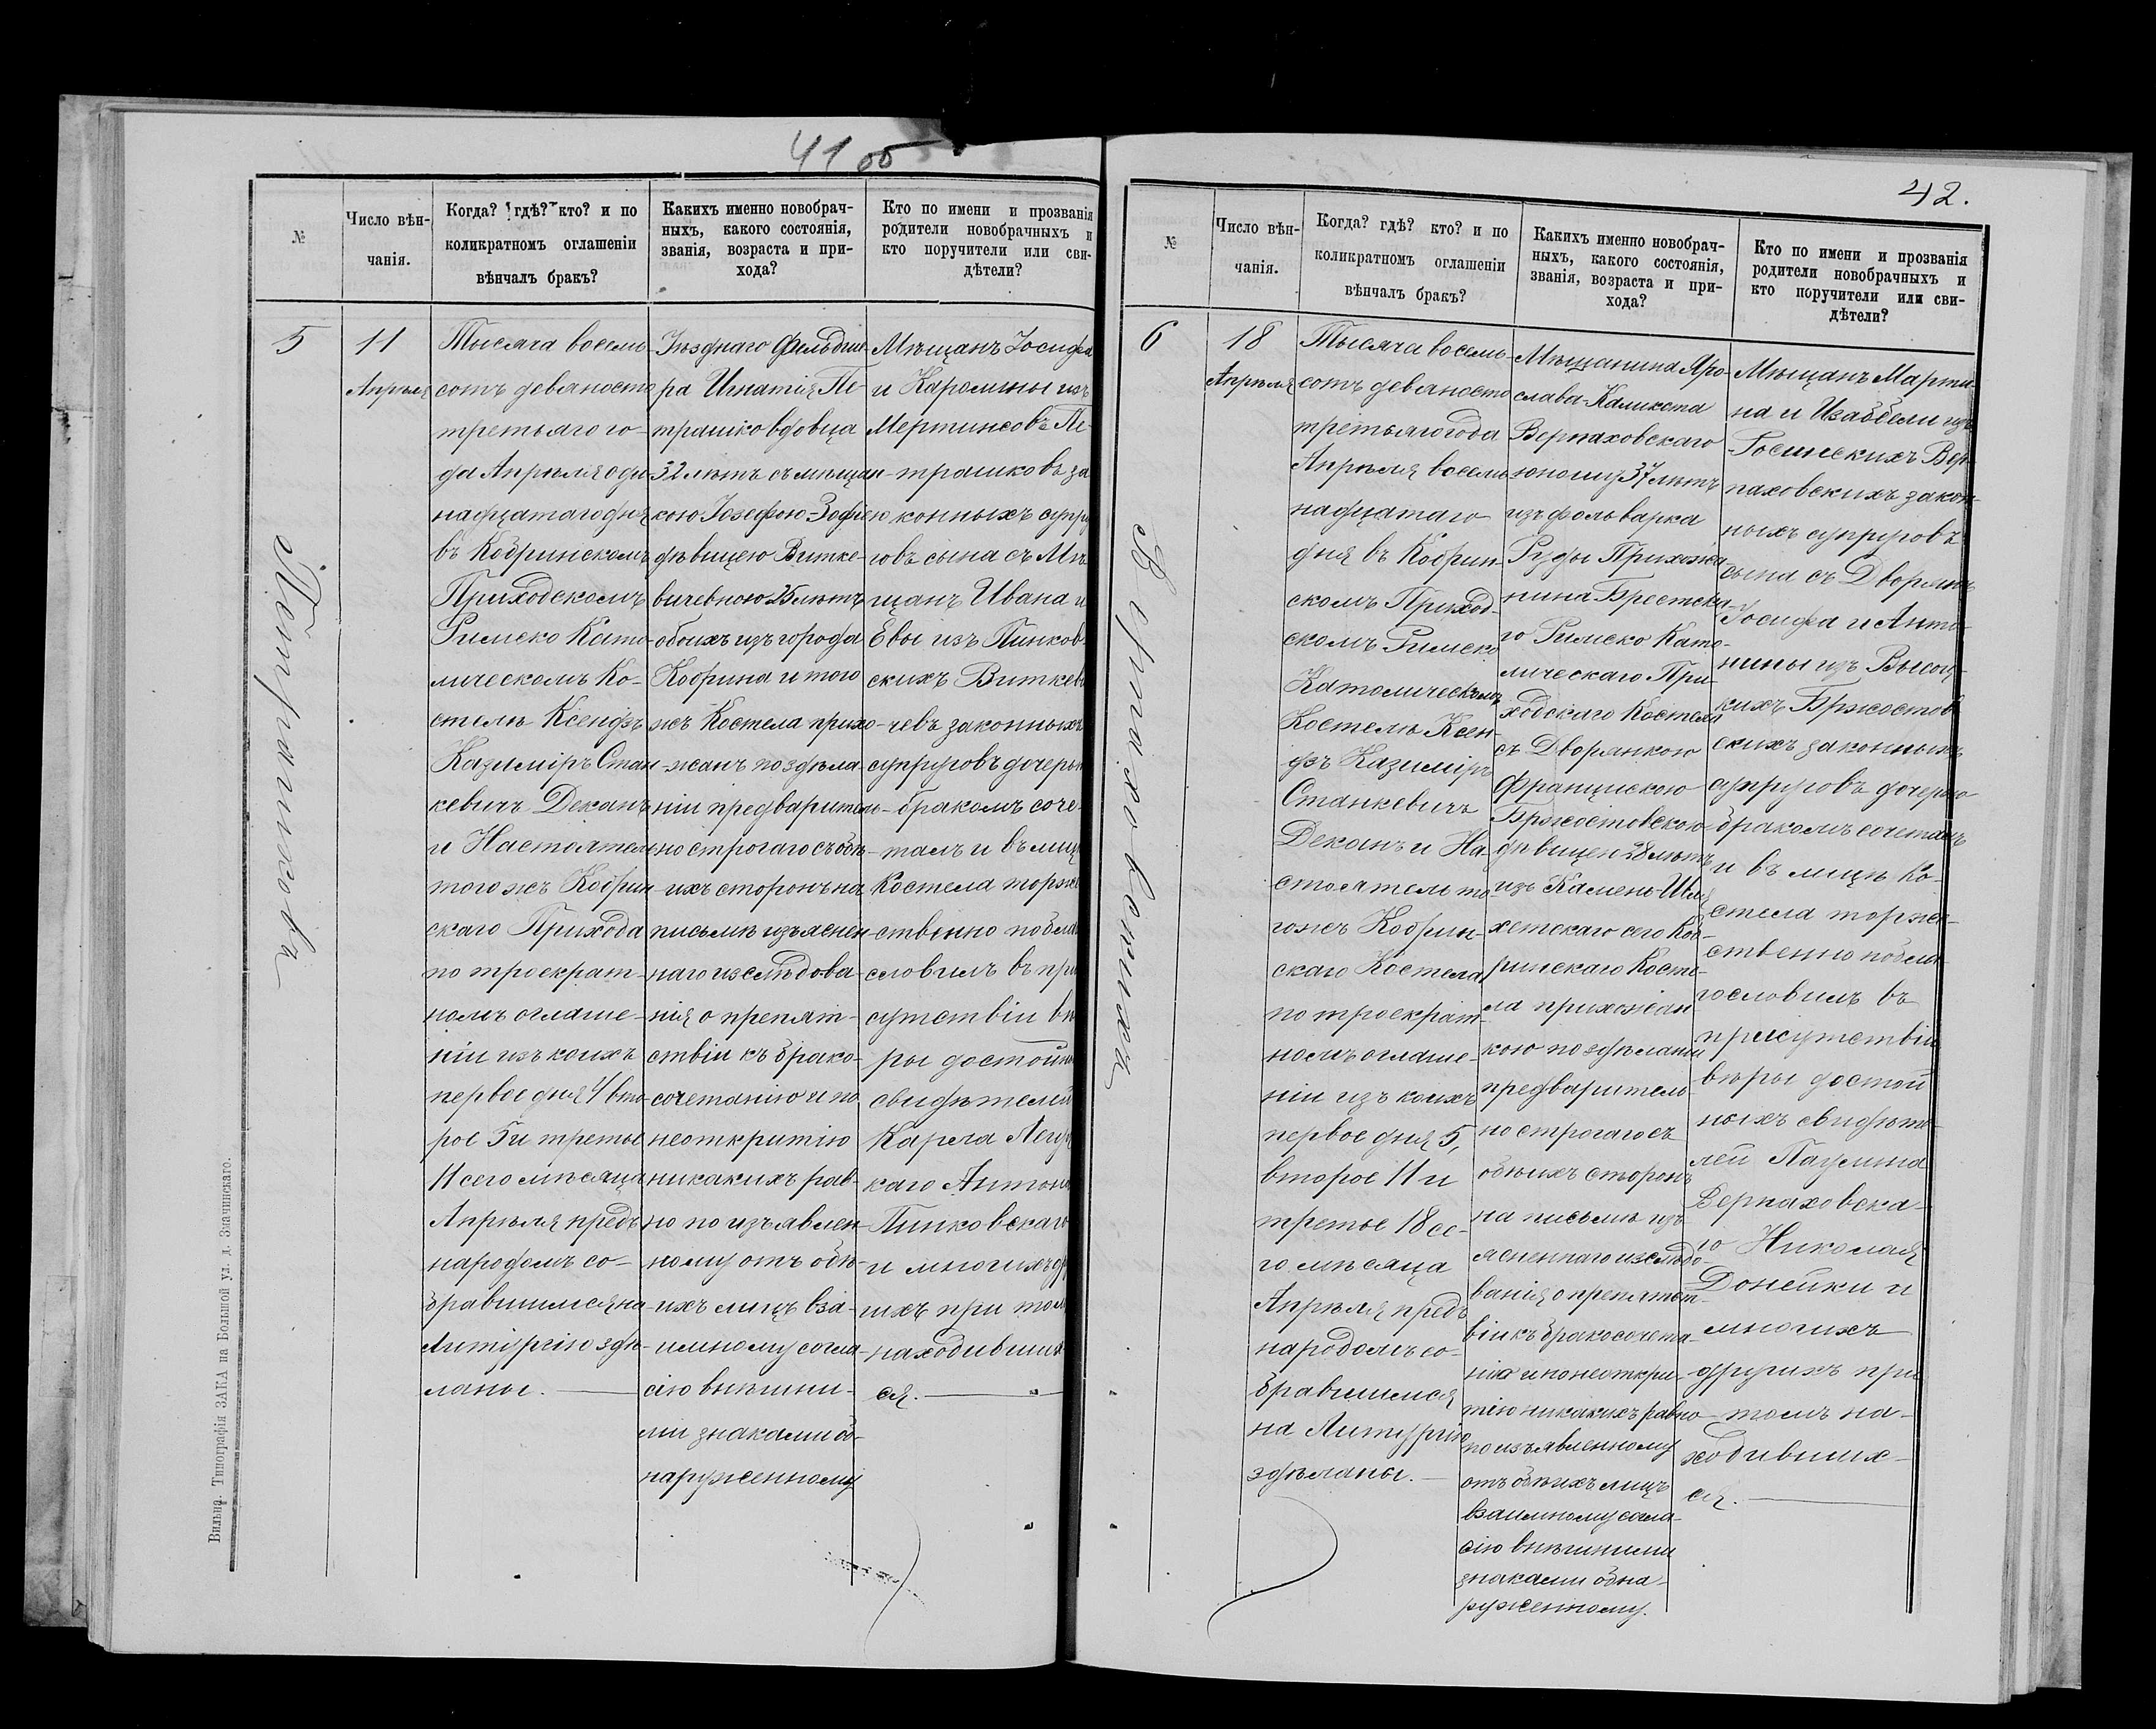 41 об
№
Число вѣн-
чанія.
Когда? гдѣ? кто? и по
коликратномъ оглашеніи
вѣнчалъ бракъ?
Какихъ именно новобрач-
ныхъ, какого состоянія,
званія, возраста и при-
хода?
Кто по имени и прозванія
родители новобрачныхъ и
кто поручители или сви-
дѣтели?
5
Петрашкова
11
Апрѣля
Тысяча восемь-
сотъ девяносто
третьяго го-
да Апрѣля оди-
надцатаго дня
въ Кобринскомъ
Приходскомъ
Римско Като-
лическомъ Ко-
стелѣ Ксендзъ
Казиміръ Стан-
кевичъ Деканъ
и Настоятель
тогожъ Кобрин-
скаго Прихода
по троекрат-
номъ оглаше-
ніи изъ коихъ
первое дня 4 вто-
рое 5 и третье
11 сего мѣсяца
Апрѣля предъ
народомъ со-
бравшимся на
Литургію здѣ-
ланы.
Уѣзднаго Фельдше-
ра Игнатія Пе-
трашко вдовца
32 лѣтъ съ мѣщан-
кою Іозефою Зофіею
дѣвицею Витке-
вичевною 25 лѣтъ
обоихъ изъ города
Кобрина и того
жъ Костела прихо-
жанъ по здѣла-
ніи предваритель-
но строгаго съ обѣ-
ихъ сторонъ на
письмѣ изъяснен-
наго изслѣдова-
нія о препят-
ствіи къ брако-
сочетанію и по
неоткритію
никакихъ рав-
но по изъявлен-
ному отъ обѣ-
ихъ лицъ вза-
имному согла-
сію внѣшни-
ми знаками об-
наруженному
Мѣщанъ Іосифа
и Каролины изъ
Мертинсовъ Пе-
трашковъ за
конныхъ супру
говъ сына съ Мѣ
щанъ Ивана и
Евы изъ Пинков-
скихъ Виткеви
чевъ законныхъ
супруговъ дочерью
бракомъ соче-
талъ и въ лицѣ
Костела торже
ственно побла
словилъ въ при
сутствіи вѣ
ры достойны
свидѣтелей
Карла
каго Антона
Пинковскаго
и многихъ дру
ихъ при том
находивших
ся.
Вильна. Типографія ЗАКА на Большой ул. д. Значинскаго.
42.
№
Число вѣн-
чанія.
Когда? гдѣ? кто? и по
коликратномъ оглашеніи
вѣнчалъ бракъ?
Какихъ именно новобрач-
ныхъ, какого состоянія,
званія, возраста и при-
хода?
Кто по имени и прозванія
родители новобрачныхъ и
кто поручители или сви-
дѣтели?
6
Верпаховскихъ
18
Апрѣля
Тысяча восемь-
сотъ девяносто
третьяго года
Апрѣля восем-
надцатаго
дня въ Кобрин-
скомъ Приход-
скомъ Римско
Католическомъ
Костелѣ Ксен-
дзъ Казиміръ
Станкевичъ
Деканъ и На-
стоятель то-
гожъ Кобрин-
скаго Костела
по троекрат-
номъ оглаше-
ніи изъ коихъ
первое дня 5,
второе 11 и
третье 18 се-
го мѣсяца
Апрѣля предъ
народомъ со-
бравшимся
на Литургію
здѣланы.
Мѣщанина Яро-
слава-Каликста
Верпаховскаго
юношу 37 лѣтъ
изъ фольварка
Руды Прихожа-
нина Брестска-
го Римско Като-
лическаго При-
ходскаго Костела
съ Дворянкою
Францишкою
Бржостовскою
дѣвицею 28 лѣтъ
изъ Камень-Шля
хетскаго сего Коб-
ринскаго Косте-
ла прихожан-
кою по здѣланіи
предваритель-
но строгаго съ
обѣихъ сторонъ
на письмѣ изъ-
ясненнаго изслѣдо-
ванія о препятст-
віи къ бракосочета-
нію и по неоткри-
тію никакихъ равно
по изъявленному
отъ обѣихъ лицъ
взаимному согла-
сію внѣшними
знаками обна-
руженному.
Мѣщанъ Марти-
на и Изабели изъ
Госинскихъ Вер-
паховскихъ закон-
ныхъ супруговъ
сына съ Дворянъ
Іосифа и Анто-
нины изъ Высоц-
кихъ Бржостов
скихъ законныхъ
супруговъ дочерью
бракомъ сочеталъ
и въ лицѣ Ко-
стела торже-
ственно побла-
гословилъ въ
присутствіи
вѣры достой
ныхъ свидѣте-
лей Паулина
Верпаховска-
го Николая
Донейки и
многихъ
другихъ при
томъ на-
ходивших-
ся.